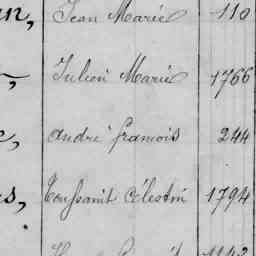 an, Jean Marie 110
, Julien Marie 1766
, andré francois 244
s, Toussaint Célestin 1794